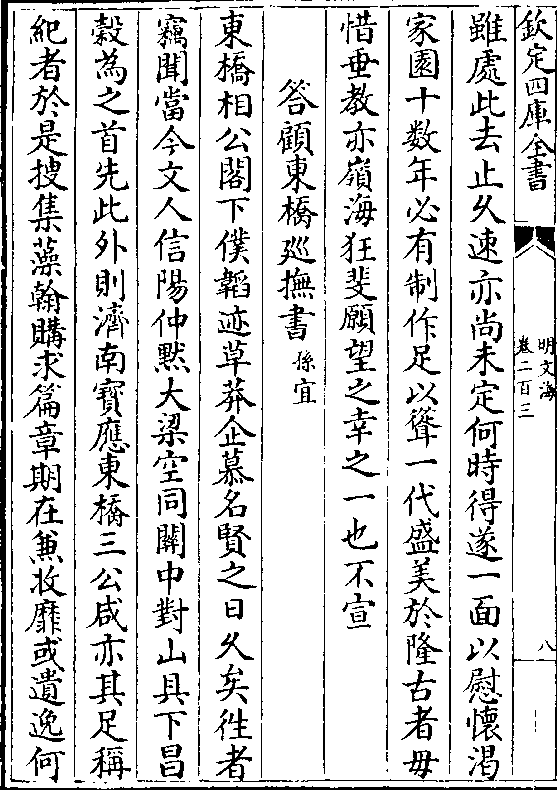 欽定四庫全書
明文海
卷二百三
八
雖處此去止久速亦尚未定何時得遂一面以慰懷渴
家園十数年必有制作足以聳一代盛美於隆古者毋
惜垂教亦嶺海狂斐願望之幸之一也不宣
答顧東橋廵撫書孫宜
東橋相公閣下僕韜迹草莽企慕名賢之日久矣徃者
竊聞當今文人信陽仲黙大梁空同關中對山具下昌
糓為之首先此外則濟南寳應東橋三公咸亦其足稱
紀者於是搜集藻翰購求篇章期在兼收靡或遺逸何